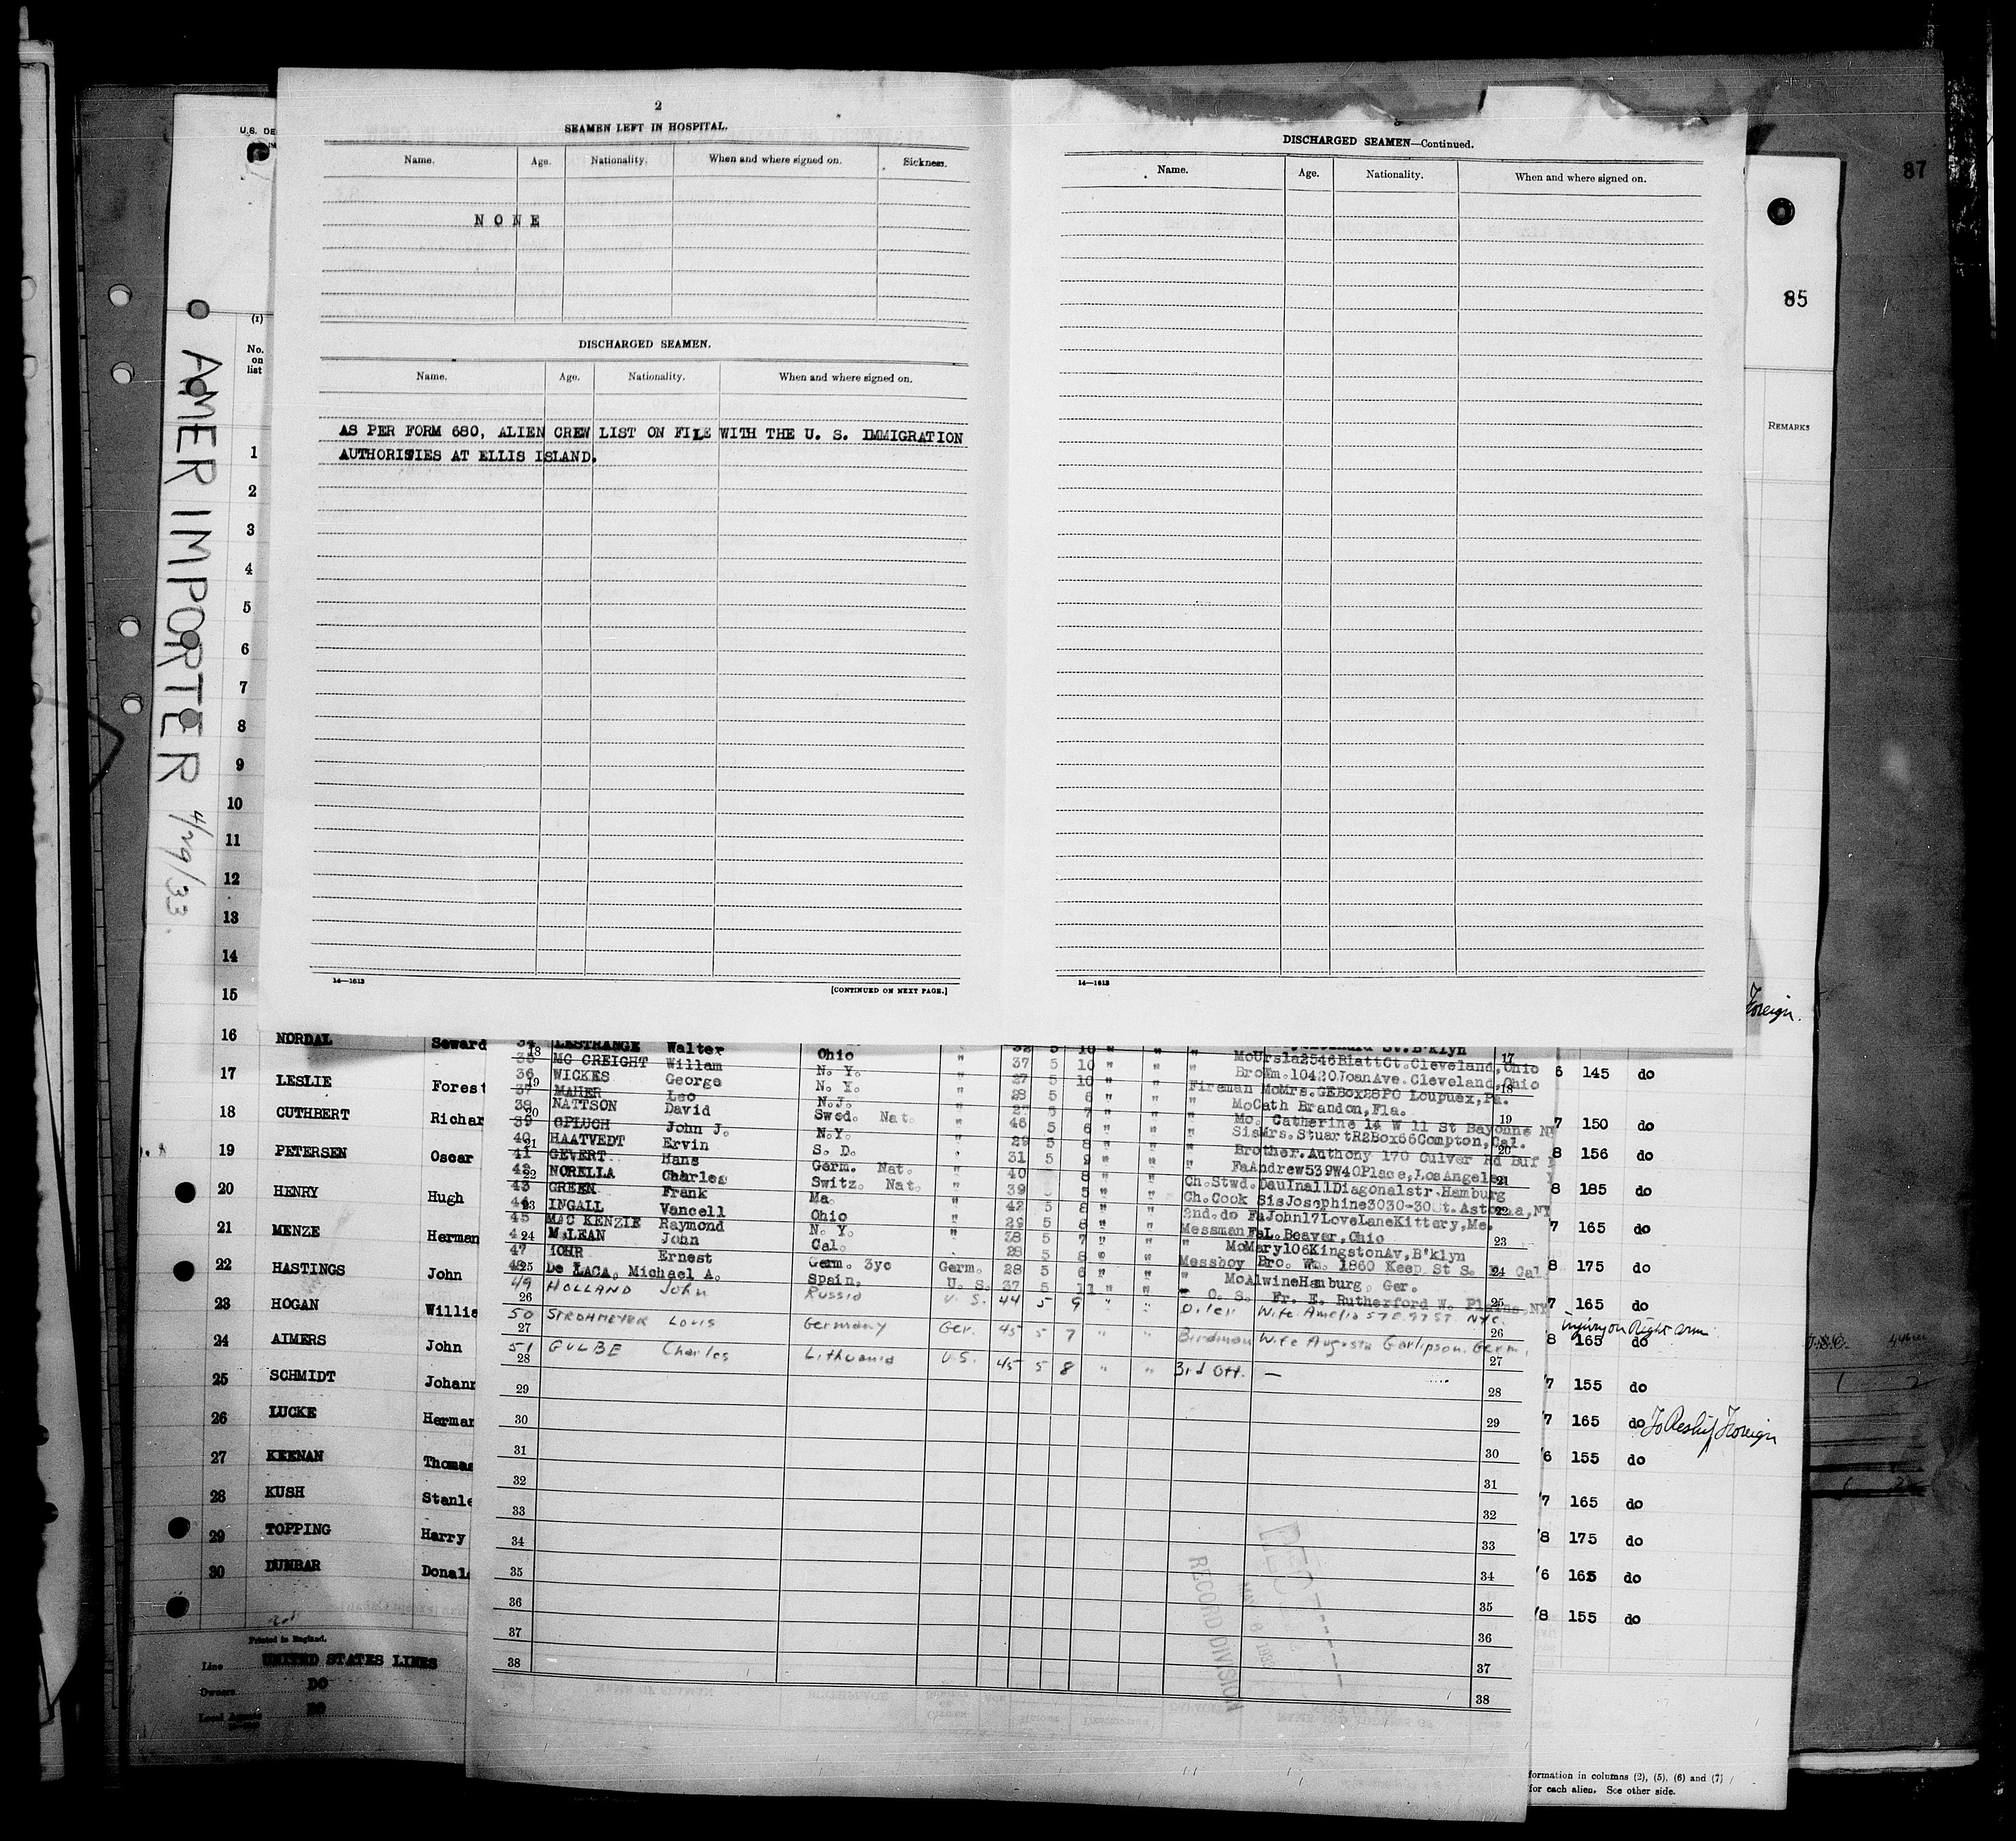 2
SEAMEN LEFT IN HOSPITAL.
Name. Age. Nationality. When and where signed on. Sickness.
NONE
DISCHARGED SEAMEN.
Name. Age. Nationality. When and where signed on.
AS PER FORM 680, ALIEN CREW LIST ON FILE WITH THE U. S. IMMIGRATION
AUTHORITIES AT ELLIS ISLAND.
14—1613
[CONTINUED ON NEXT PAGE.]
DISCHARGED SEAMEN—Continued.
Name. Age. Nationality. When and where signed on.
14—1613
87
85
REMARKS
U.S. DE
(1)
No.
on
list
AMER IMPORTER 4/29/33
1
2
3
4
5
6
7
8
9
10
11
12
13
14
15
Foreign.
16 NORDAL Seward
17 LESLIE Forest
18 CUTHBERT Richar
19 PETERSEN Oscar
20 HENRY Hugh
21 MENZE Herman
22 HASTINGS John
23 HOGAN Willia
24 AIMERS John
25 SCHMIDT Johann
26 LUCKE Herman
27 KEENAN Thomas
28 KUSH Stanle
29 TOPPING Harry
30 DUMBAR Donal
Printed in England.
Line UNITED STATES LINES
Owners DO
Local Agents DO
34 LESTRANGE Walter Ohio 32 5 10
35 MC CREIGHT Willam N. Y. 37 5 10 " " " MoUrsla2546BiattCt.Cleveland,Ohio
36 WICKES George N. Y. 27 5 10 " " " BroWm.10420JoanAve.Cleveland,Ohio
37 MAHER Leo N.J. 28 5 6 " " Fireman MoMrs.GEBox28PO Loupuex,Pa.
38 NATTSON David Swed. Nat. 5 7 " " " MoCath Brandon,Fla.
39 OPLUCH John J. N.Y. 5 6 " " " Mo. Catherine 14 W 11 St Bayonne NJ
40 HAATVEDT Ervin S. D. 29 5 8 " " " SisMrs.StuartR2Box66Compton,Cal.
41 GEVERT Hans Germ. Nat. 31 5 9 " " " Brother.Anthony 170 Culver Rd Buf
42 NORELLA Charles Switz. Nat. 40 8 " " " FaAndrew539W40Place,LosAngeles
43 GREEN Frank Ma. 39 5 " " Ch.Stwd. DauInallDiagonalstr.Hamburg
44 INGALL Vancell Ohio 42 5 8 " " Ch.Cook SisJosephine3030-30St.Astoria,NY
45 MAC KENZIE Raymond N. Y. 29 5 8 " " 2nd.do FaJohn17LoveLaneKittery,Me.
McLEAN John Cal. 38 5 7 " " Messman FaL.Beaver,Ohio
47 IOHR Ernest Germ. 3yc Germ. 28 5 8 " " " MoMary106KingstonAv,B'klyn
48 De LACA, Michael A. Spain. U. S. 28 5 6 " " Messboy Bro. Wm. 1860 Keep St S. Cal.
49 HOLLAND John Russia U. S. 37 5 11 " " " MoAlwineHamburg, Ger.
O. S. Fr. E. Rutherford W. Plains,NY
50 STROHMEYER Louis Germany Ger. 44 5 9 " " Oiler Wife Amelia 57 E. 97 ST. NYC.
51 GULBE Charles Lithuania U.S. 45 5 7 " " Wife Augusta Garlipson. Germ.
45 5 8 " " 3rd Off. —
18
19
20
21
22
23
24
25
26
27
28
29
30
31
32
33
34
35
36
37
38
17
18
19
20
21
22
23
24
25
26
27
28
29
30
31
32
33
34
35
36
37
38
6 145 do
7 150 do
8 156 do
8 185 do
7 165 do
8 175 do
7 165 do
injury on Right arm
8 165 do
7 155 do
7 165 do To Reship Foreign
6 155 do
7 165 do
8 175 do
6 165 do
8 155 do
RECORD DIVISION
formation in columns (2), (5), (6) and (7)
for each alien. See other side.